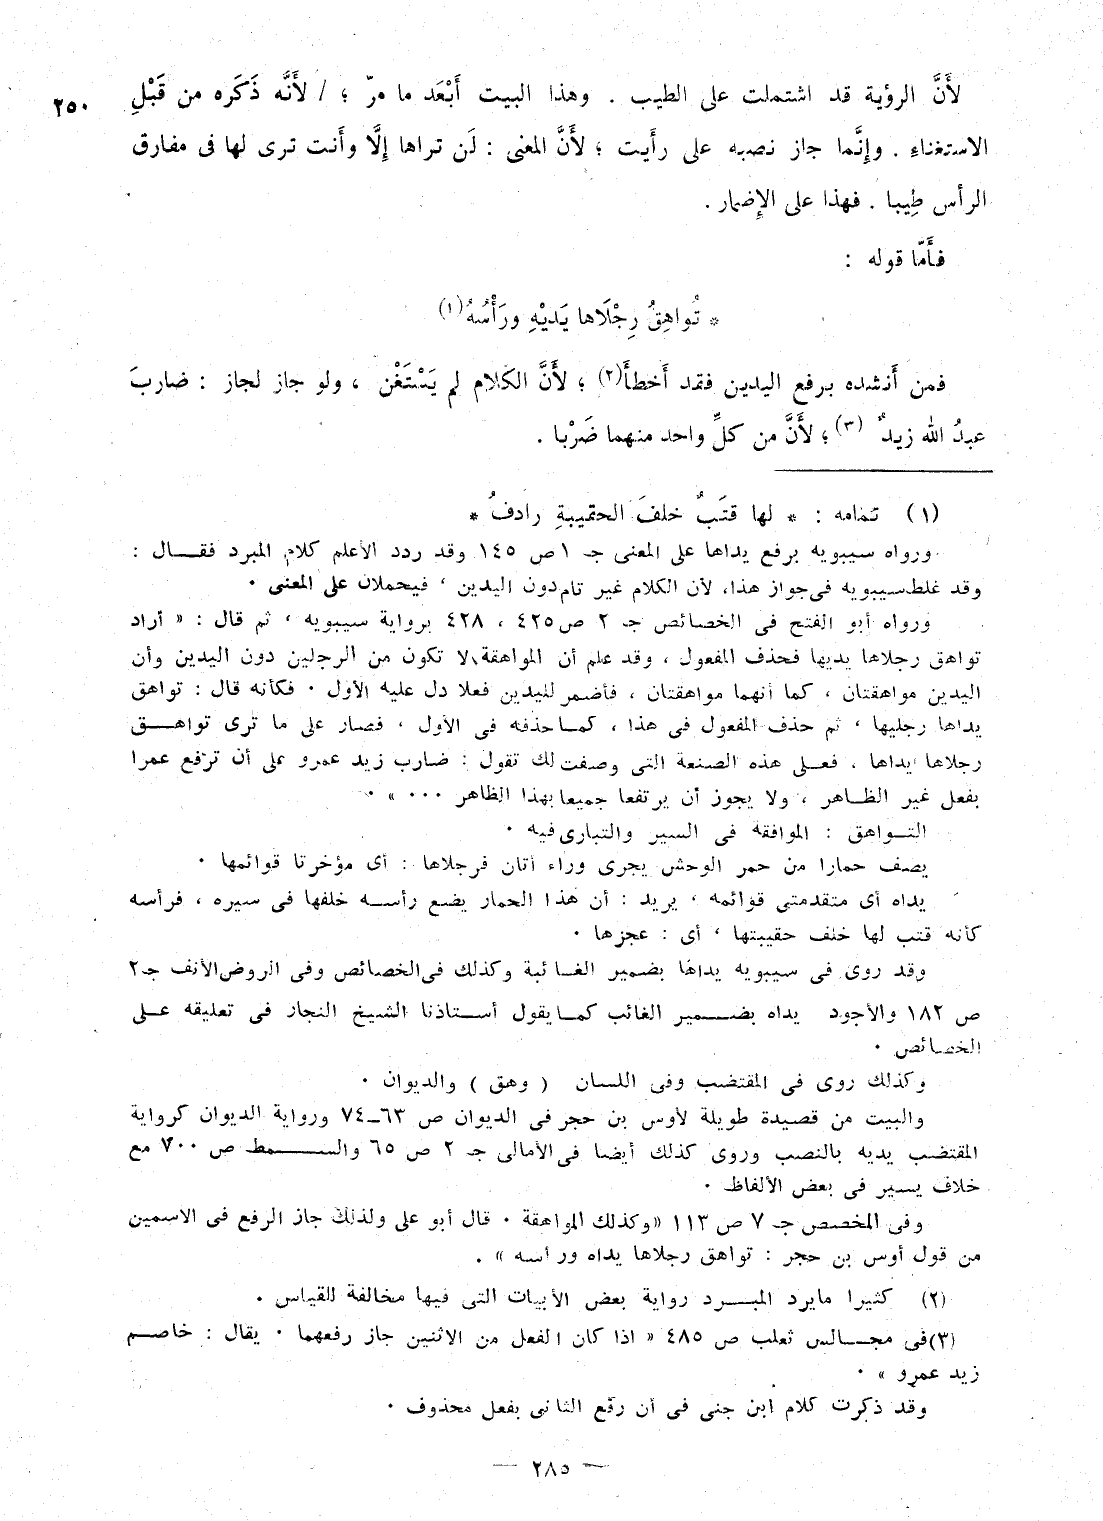 لأَنَّ الرؤية قد اشتملت على الطيب . وهذا البيت أَبْعَد ما مرّ ؛ / لأَنَّه ذَكَره من قَبْلِ ٢٥٠
الاستغناءِ . وإِنَّما جاز نصبه على رأَيت ؛ لأَنَّ المعنى : لَن تراها إِلَّا وأَنت ترى لها فى مفارق
الرأس طِيبا . فهذا على الإِضمار .
فأَمّا قوله :
* تُواهِقُ رِجْلَاها يَديْهِ ورَأْسُهُ(١)
فمن أَنشده برفع اليدين فقد أَخطأَ(٢) ؛ لأَنَّ الكلام لم يَسْتَغْن ، ولو جاز لجاز : ضاربَ
عبدُ الله زيدٌ (٣) ؛ لأَنَّ من كلِّ واحد منهما ضَرْبا .
(١) تمامه : * لها قتَبٌ خلفَ الحقيبةِ رادفُ *
ورواه سيبويه برفع يداها على المعنى جـ ١ ص ١٤٥ وقد ردد الأعلم كلام المبرد فقال :
وقد غلط سيبويه فى جواز هذا، لأن الكلام غير تام دون اليدين ، فيحملان على المعنى .
ورواه أبو الفتح فى الخصائص جـ ٢ ص ٤٢٥ ، ٤٢٨ برواية سيبويه ، ثم قال : « أراد
تواهق رجلاها يديها فحذف المفعول ، وقد علم أن المواهقة لا تكون من الرجلين دون اليدين وأن
اليدين مواهقتان ، كما أنهما مواهقتان ، فأضمر لليدين فعلا دل عليه الأول . فكأنه قال : تواهق
يداها رجليها ، ثم حذف المفعول فى هذا ، كما حذفه فى الأول ، فصار على ما ترى تواهق
رجلاها يداها ، فعلى هذه الصنعة التى وصفت لك تقول : ضارب زيد عمرو على أن ترفع عمرا
بفعل غير الظاهر ، ولا يجوز أن يرتفعا جميعا بهذا الظاهر ٠٠٠ » .
التواهق : الموافقة فى السير والتبارى فيه .
يصف حمارا من حمر الوحش يجرى وراء أتان فرجلاها : أى مؤخرتا قوائمها .
يداه أى متقدمتى قوائمه ، يريد : أن هذا الحمار يضع رأسه خلفها فى سيره ، فرأسه
كأنه قتب لها خلف حقيبتها ، أى : عجزها .
وقد روى فى سيبويه يداها بضمير الغائبة وكذلك فى الخصائص وفى الروض الأنف جـ ٢
ص ١٨٢ والأجود يداه بضمير الغائب كما يقول أستاذنا الشيخ النجار فى تعليقه على
الخصائص .
وكذلك روى فى المقتضب وفى اللسان ( وهق ) والديوان .
والبيت من قصيدة طويلة لأوس بن حجر فى الديوان ص ٦٣-٧٤ ورواية الديوان كرواية
المقتضب يديه بالنصب وروى كذلك أيضا فى الأمالى جـ ٢ ص ٦٥ والسمط ص ٧٠٠ مع
خلاف يسير فى بعض الألفاظ .
وفى المخصص جـ ٧ ص ١١٣ «وكذلك المواهقة . قال أبو على ولذلك جاز الرفع فى الاسمين
من قول أوس بن حجر : تواهق رجلاها يداه ورأسه » .
(٢) كثيرا ما يرد المبرد رواية بعض الأبيات التى فيها مخالفة للقياس .
(٣) فى مجالس ثعلب ص ٤٨٥ « اذا كان الفعل من الاثنين جاز رفعهما . يقال : خاصم
زيد عمرو » .
وقد ذكرت كلام ابن جنى فى أن رفع الثانى بفعل محذوف .
— ٢٨٥ —